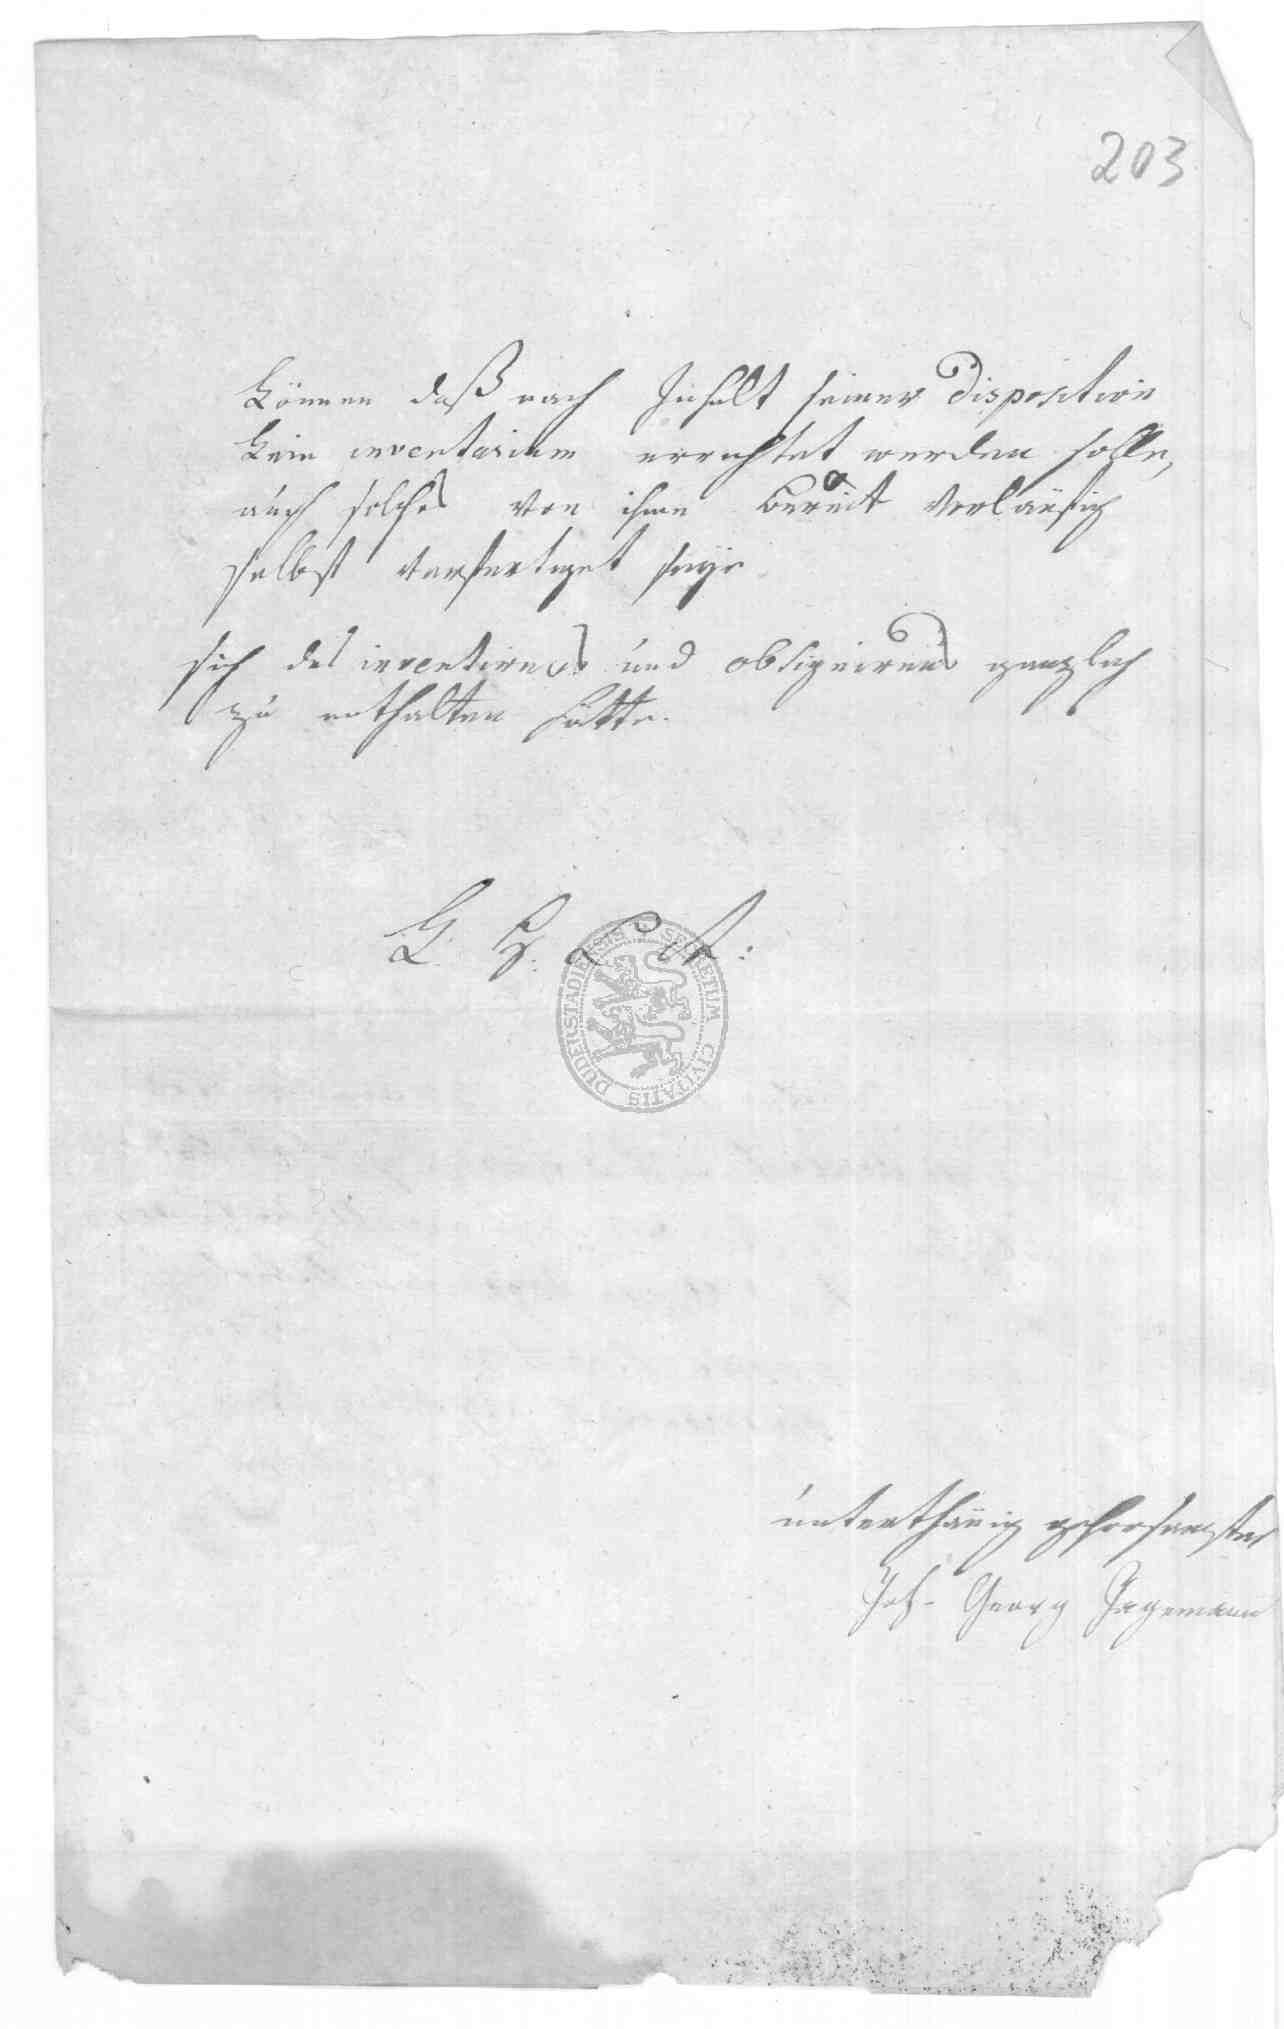 203
können daß nach Inhalt seiner Disposition
kein inventarium errichtet werden solle,
auch solches von ihme bereit vorläufig
selbst verfertiget seye
sich des inventirens und obsignirens gänzlich
zu enthalten hätte.
SECRETUM CIVITATIS DUDERSTADIENSIS
unterthänig gehorsamster
Joh. Georg Jagemann